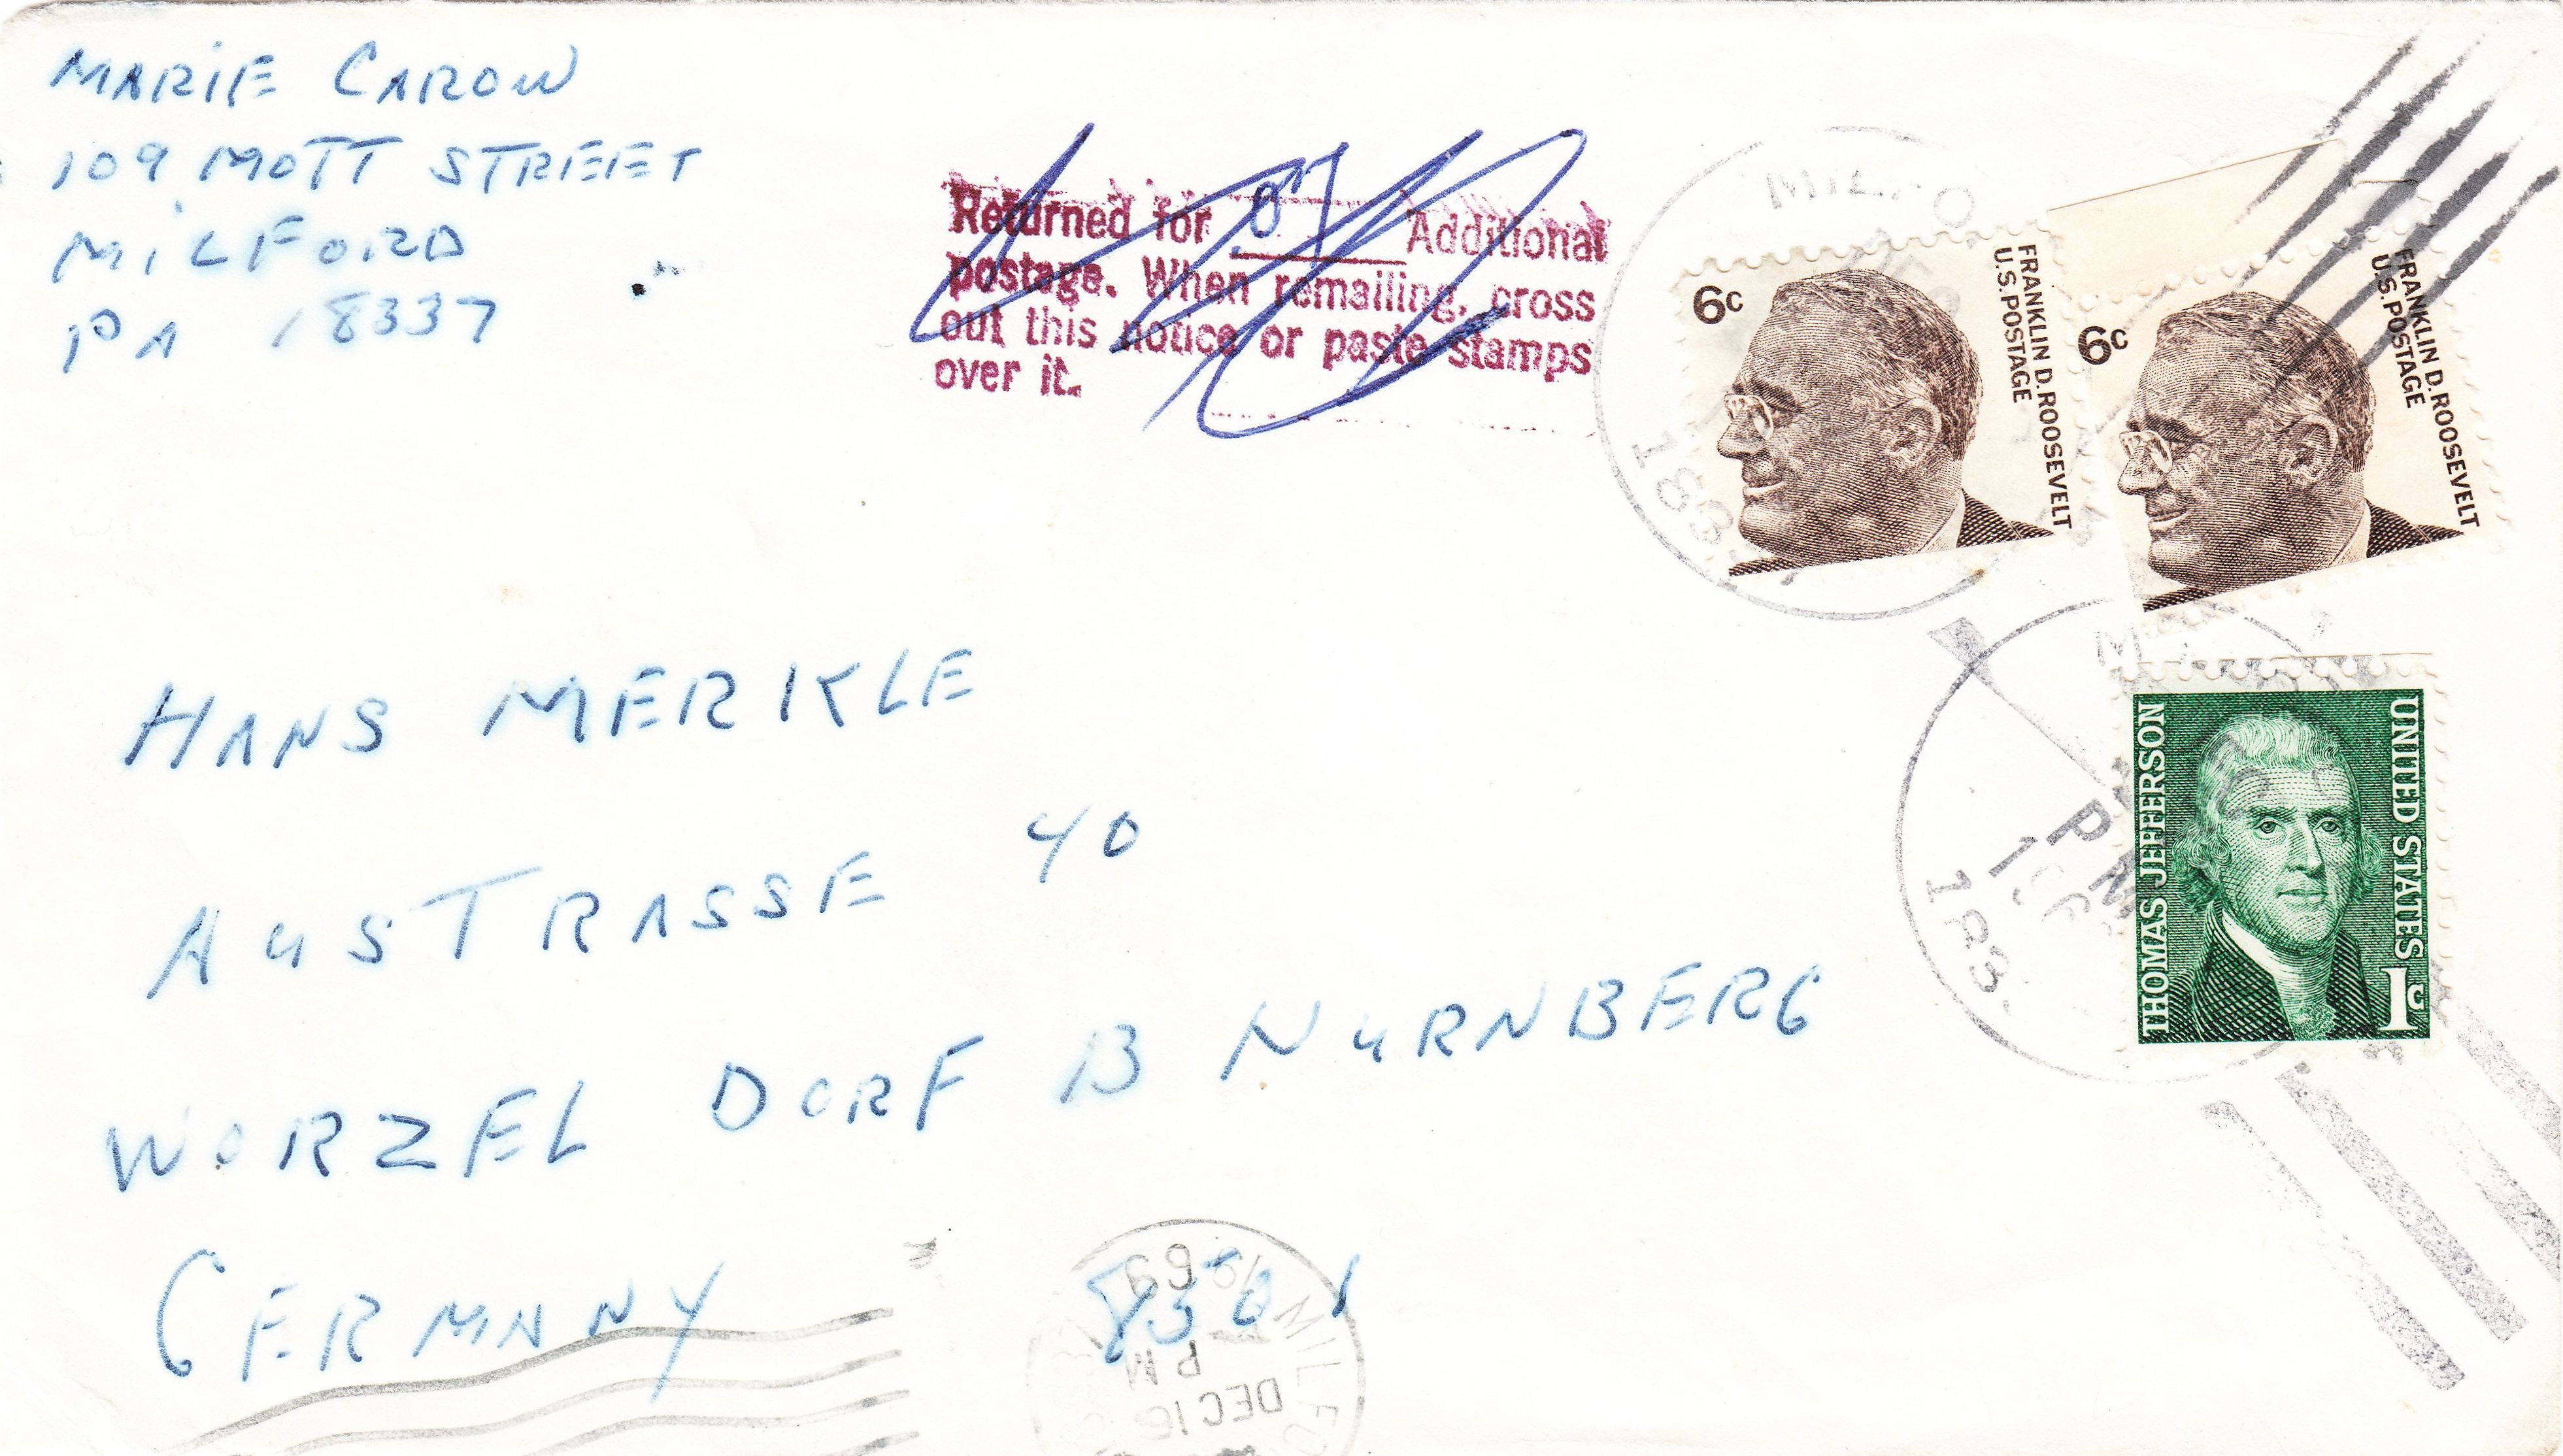 MARIE CAROW
109 MOTT STREET
MILFORD
PA 18337
Returned for 07 Additional
postage. When remailing, cross
out this notice or paste stamps
over it.
6c
FRANKLIN D. ROOSEVELT
U.S. POSTAGE
6c
FRANKLIN D. ROOSEVELT
U.S. POSTAGE
THOMAS JEFFERSON
UNITED STATES
1c
PM
HANS MERKLE
AUSTRASSE 40
WORZEL DORF B NURNBERG
GERMANY 8501
MILFO
DEC 16
PM
1969